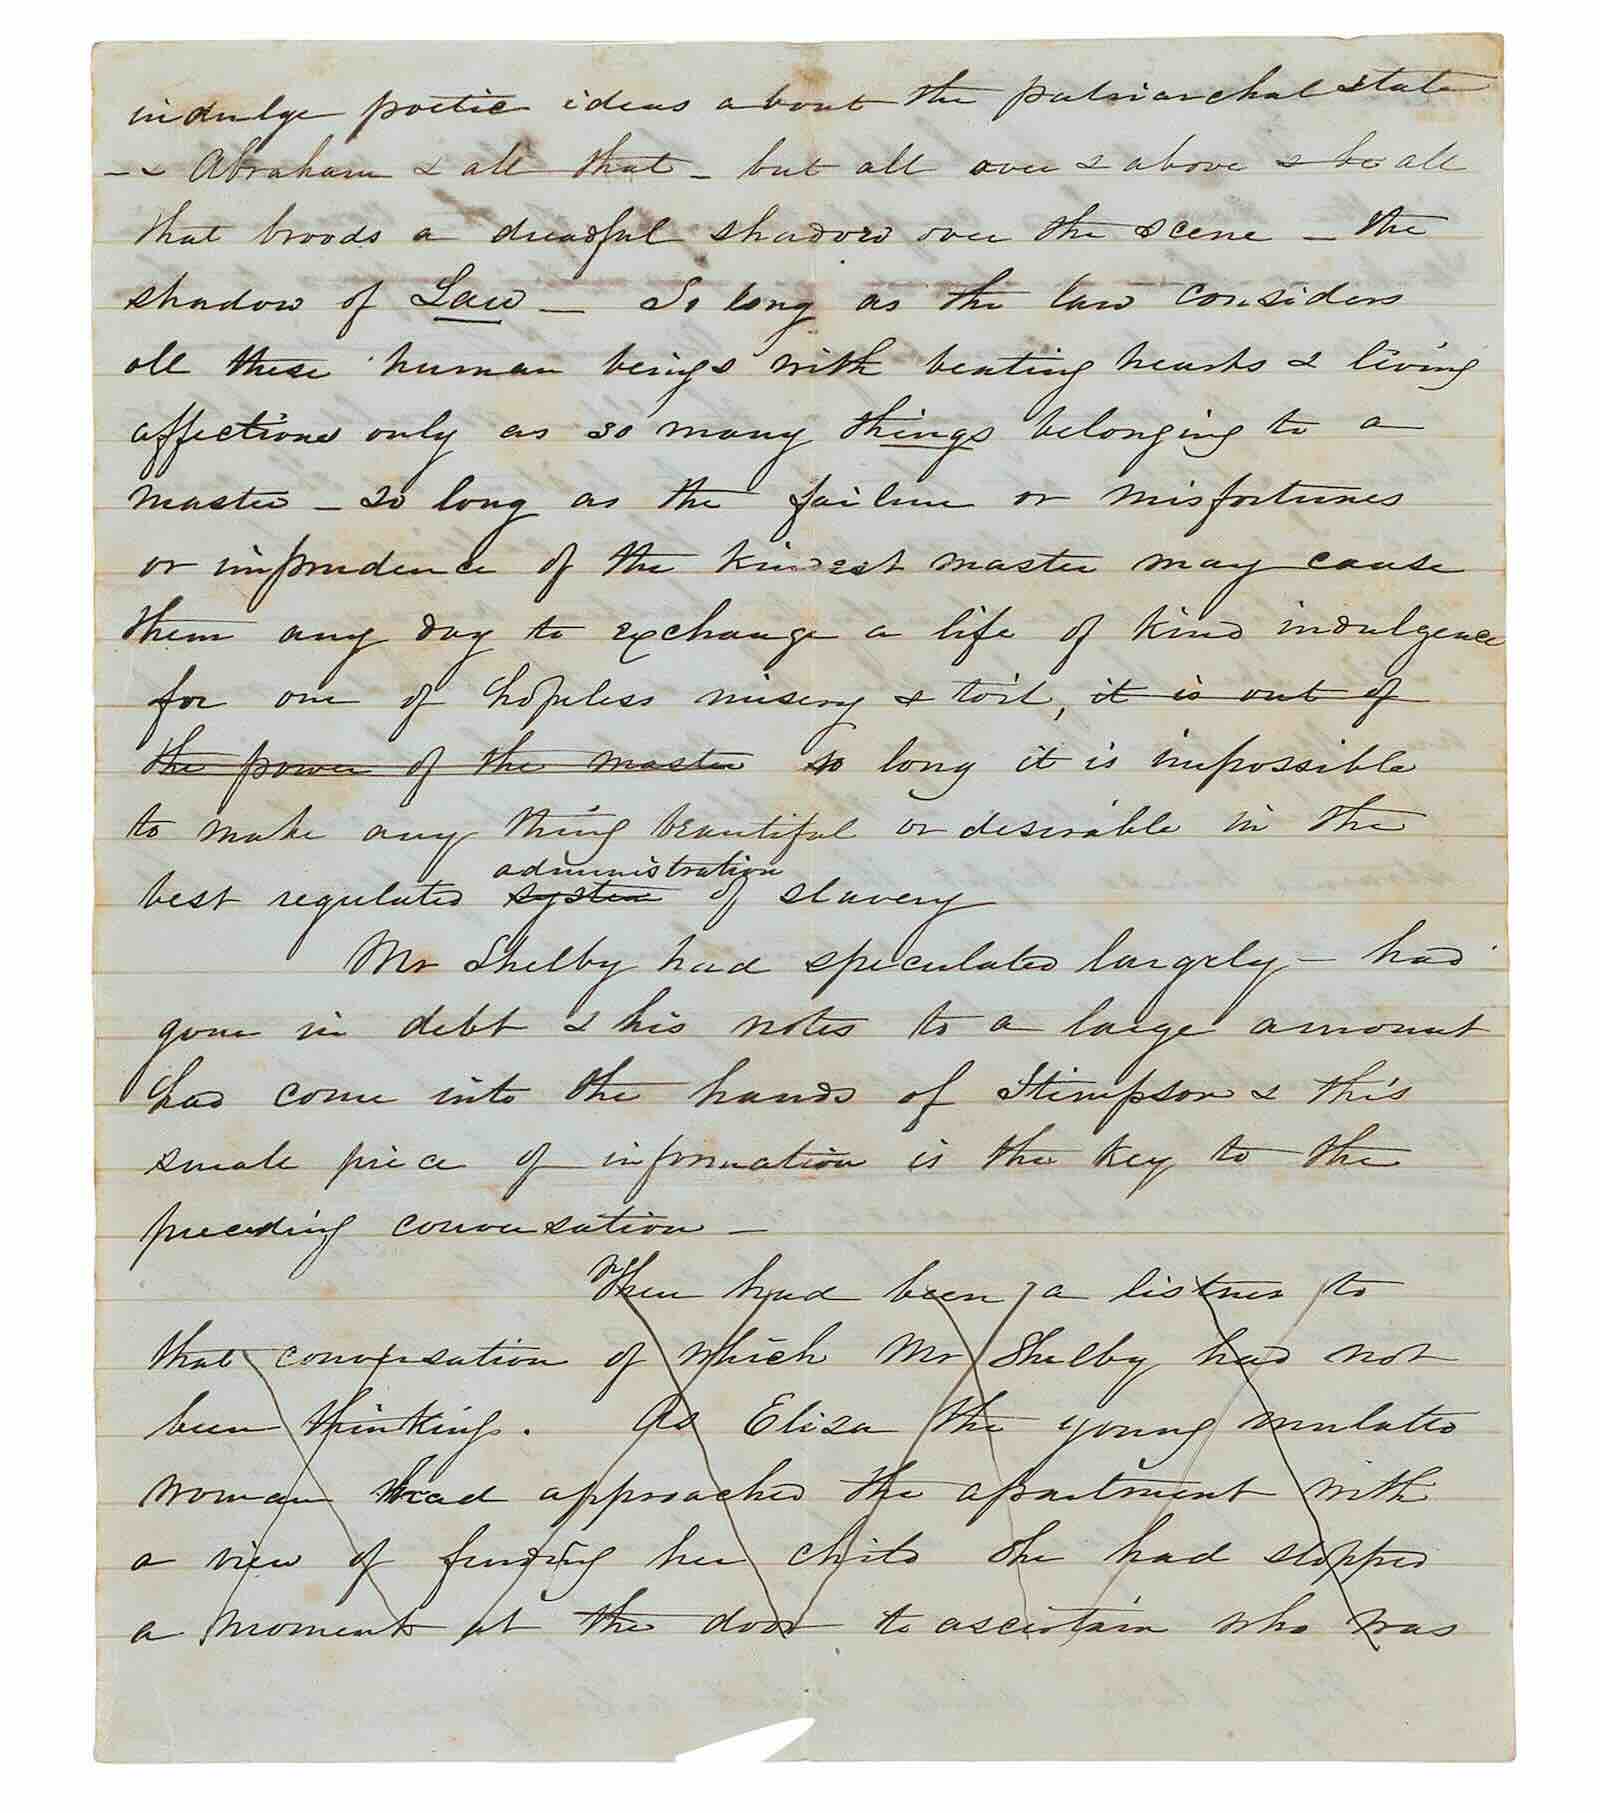 indulge poetic ideas about the patriarchal state
– & Abraham & all that – but all over & above & be all
that broods a dreadful shadow over the scene – the
shadow of Law – So long as the law considers
all these human beings with beating hearts & living
affections only as so many things belonging to a
master – So long as the failure or misfortunes
or imprudence of the kindest master may cause
them any day to exchange a life of kind indulgence
for one of hopeless misery & toil, it is out of
the power of the master so long it is impossible
to make any thing beautiful or desirable in the
administration
best regulated system of slavery
Mr Shelby had speculated largely – had
gone in debt & his notes to a large amount
had come into the hands of Stimpson & this
small piece of information is the key to the
preceding conversation –
There had been a listner to
that conversation of which Mr Shelby had not
been thinking. As Eliza the young mulatto
woman had approached the apartment with
a view of finding her child she had stopped
a moment at the door to ascertain who was